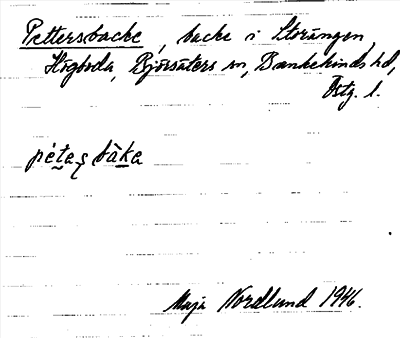 Pettersbacke, backe i Storängen,
Högboda, Björsäters sn, Bankekinds hd,
Östg. l.
pètaʂ bàka
Maja Nordlund 1946.